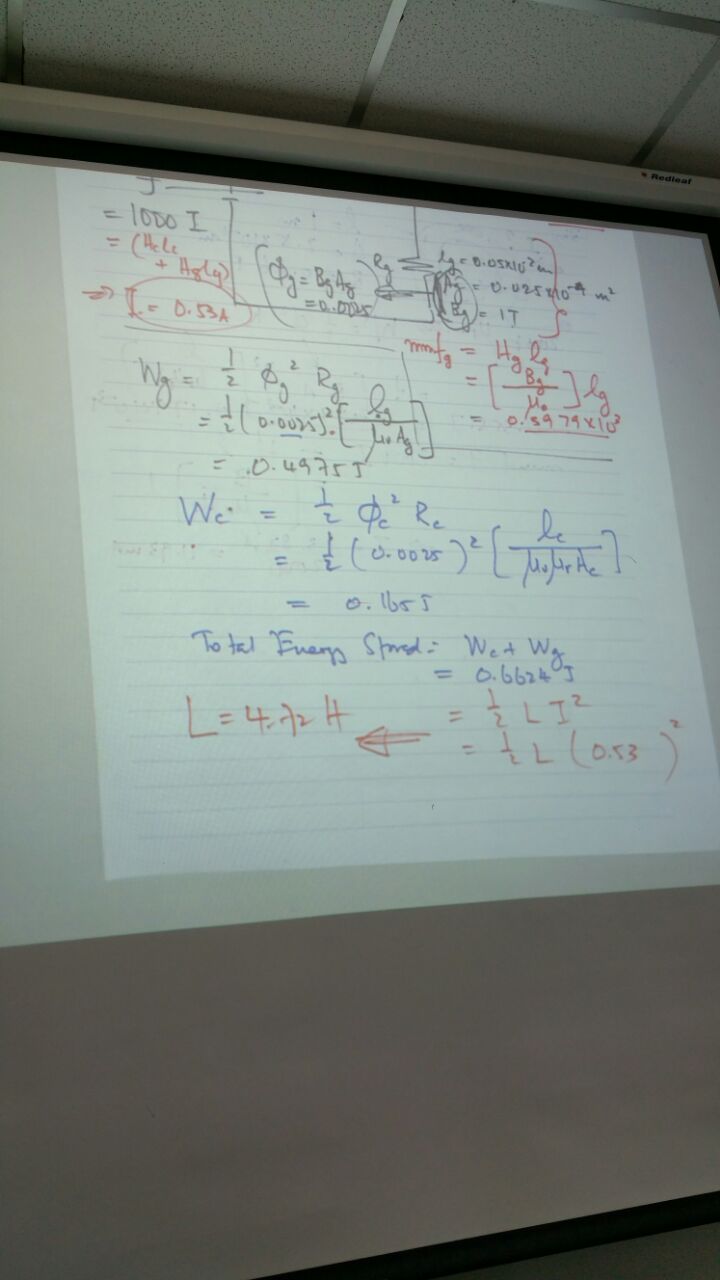 Redleaf
= 1000 I
= (HcLc
+ HgLg)
⇒ I = 0.53A
Φg = Bg Ag
= 0.0025
Rg
lg = 0.05×10⁻² m
Ag = 0.025×10⁻⁴ m²
Bg = 1T
mmfg = Hg lg
= [Bg/μ₀] lg
= 0.3979×10³
Wg = ½ Φg² Rg
= ½ (0.0025)². [lg/μ₀Ag]
= 0.4975J
Wc = ½ Φc² Rc
= ½ (0.0025)² [lc/μ₀μrAc]
= 0.165J
Total Energy Stored = Wc + Wg
= 0.6624J
= ½ L I²
L = 4.72 H ⇐ = ½ L (0.53)²